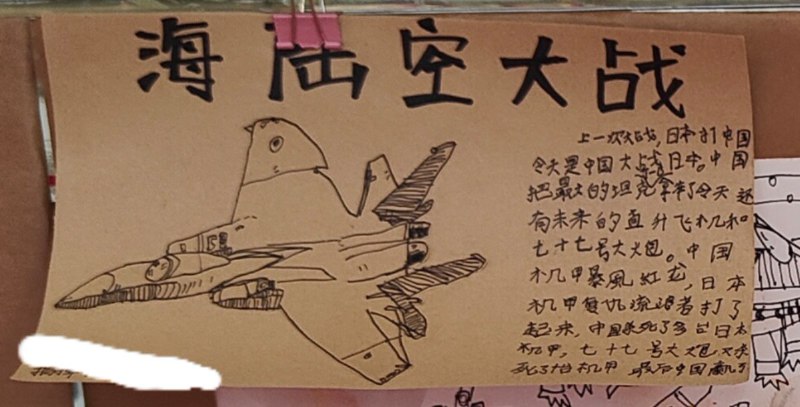 海陆空大战
上一次大战,日本打中国
今天是中国大战日本。中国
把最大的坦克拿来了今天还
有未来的直升飞机和
七十七号大炮。中国
机甲暴風紅龙,日本
机甲复仇流浪者打了
起来,中国杀死了多台日本
机甲,七十七号大炮又杀
死了机甲 最后中国赢了